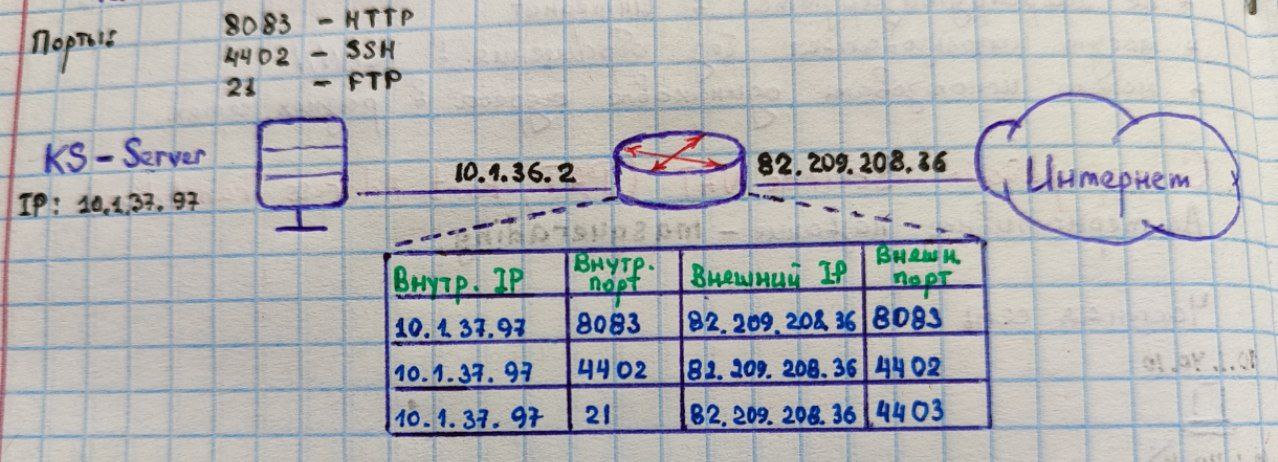 Порты: 8083 - HTTP
4402 - SSH
21 - FTP
KS-Server
IP: 10.1.37.97
10.1.36.2
82.209.208.36
Интернет
Внутр. IP Внутр. порт Внешний IP Внешн. порт
10.1.37.97 8083 82.209.208.36 8083
10.1.37.97 4402 82.209.208.36 4402
10.1.37.97 21 82.209.208.36 4403